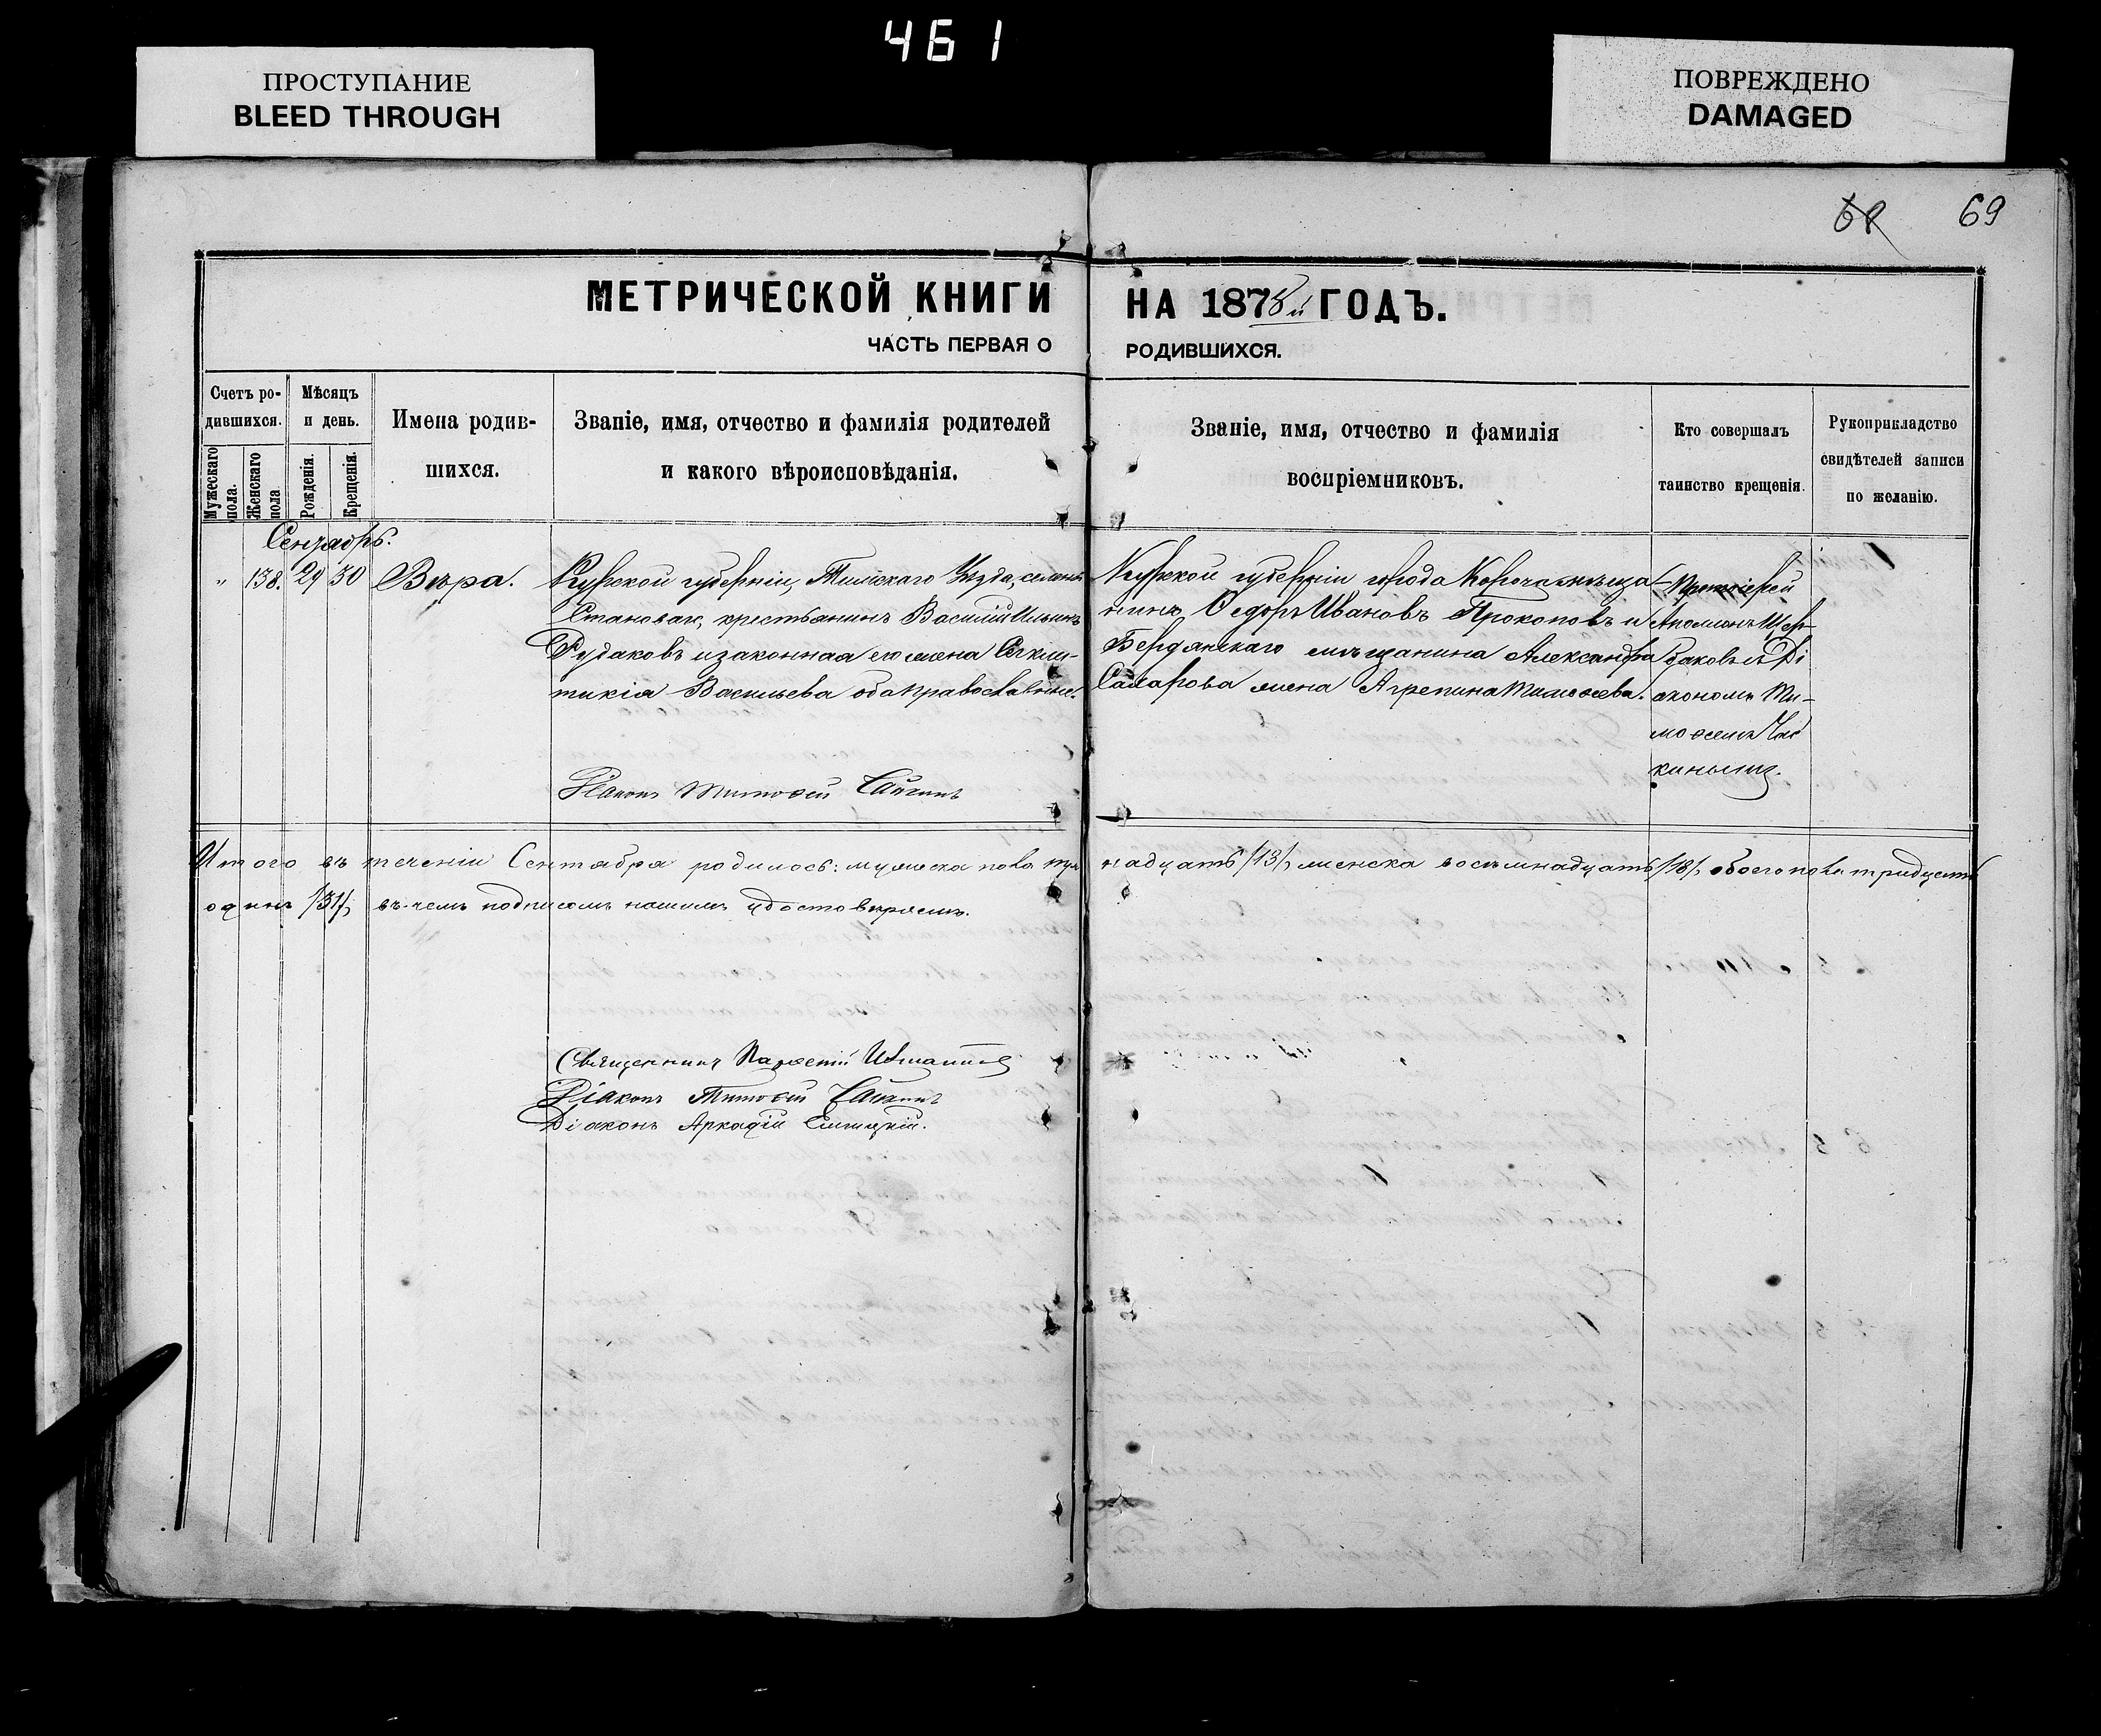 461
ПРОСТУПАНИЕ
BLEED THROUGH
ПОВРЕЖДЕНО
DAMAGED
68 69
МЕТРИЧЕСКОЙ КНИГИ НА 1878й ГОДЪ.
ЧАСТЬ ПЕРВАЯ О РОДИВШИХСЯ.
Счетъ ро-
дившихся.
Мужескаго
пола.
Женскаго
пола
Мѣсяцъ
и день.
Рожденія.
Крещенія.
Имена родив-
шихся.
Званіе, имя, отчество и фамилія родителей
и какого вѣроисповѣданія.
Званіе, имя, отчество и фамилія
воспріемниковъ.
Кто совершалъ
таинство крещенія.
Рукоприкладство
свидѣтелей записи
по желанію.
Сентябрь.
" 138. 29 30 Вѣра.
Курской губерніи, Тимскаго Уѣзда,
крестьянинъ Василій Ильинъ
Рудаковъ и законная его жена
Васильева оба православные.
Курской губерніи города Корочи мѣща-
нинъ Ѳедоръ Ивановъ Прокоповъ и
Бердянскаго мѣщанина Александра
Сахарова жена Агрепина Тимоѳеева.
Протоіерей
Щер-
баковъ съ Ді
акономъ Ти-
моѳеемъ Чай
кинымъ.
Діаконъ Тимоѳей Чайкинъ
Итого въ теченіи Сентября родилось: мужеска пола три-
надцать /13/, женска восемнадцать /18/, обоего пола тридцать
одинъ /31/, въ чемъ подписомъ нашимъ удостовѣряемъ.
Священникъ
Діаконъ Тимоѳей Чайкинъ
Діаконъ Аркадій